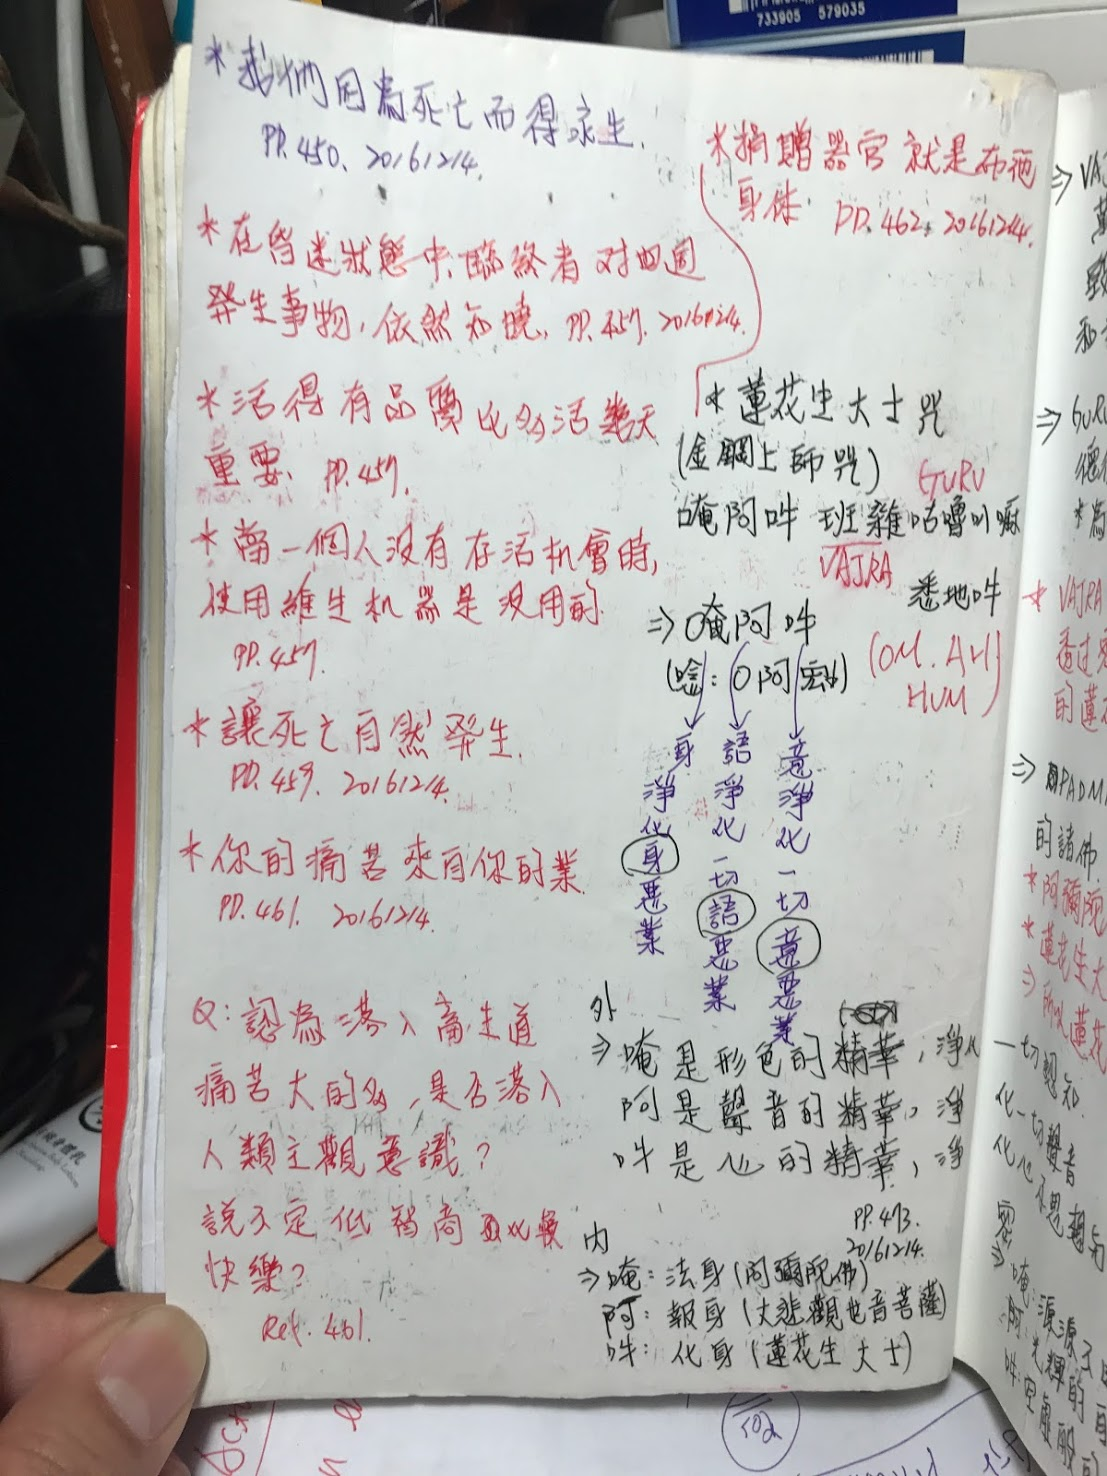 733905 579035
*我們因為死亡而得永生.
PP.450. 20161214.
*在昏迷狀態中,臨終者对四週
發生事物,依然知曉. PP.457. 20161214.
*活得有品質比多活幾天
重要. PP.457.
*當一個人没有存活机會時,
使用維生机器是沒用的.
PP.457.
*讓死亡自然發生.
PP.459. 20161214.
*你的痛苦來自你的業.
PP.461. 20161214.
Q:認為落入畜生道
痛苦大的多,是否落入
人類主觀意識?
說不定低智商
快樂?
Ref. 461.
*捐贈器官就是布施
身体. PP.462. 20161214.
*蓮花生大士咒
(金鋼上師咒)
GURU
唵阿吽 班雜咕嚕叭嘛
VAJRA
悉地吽
⇒唵阿吽
(唸:O阿宏)
(OM.AH)
HUM
身淨化身惡業
語淨化一切語惡業
意淨化一切意惡業
外
⇒唵是形色的精華,淨化一切認知.
阿是聲音的精華,淨化一切聲音
吽是心的精華,淨化心
PP.473.
20161214.
內
⇒唵:法身(阿彌陀佛)
阿:報身(大悲觀世音菩薩)
吽:化身(蓮花生大士)
⇒VAJ
和
⇒GURU
*為
*VAJRA
透过
的蓮
⇒PADMA
的諸佛
*阿彌陀
*蓮花生大
⇒所以蓮花
密
⇒唵:源源不
阿:光輝的
吽:空虛